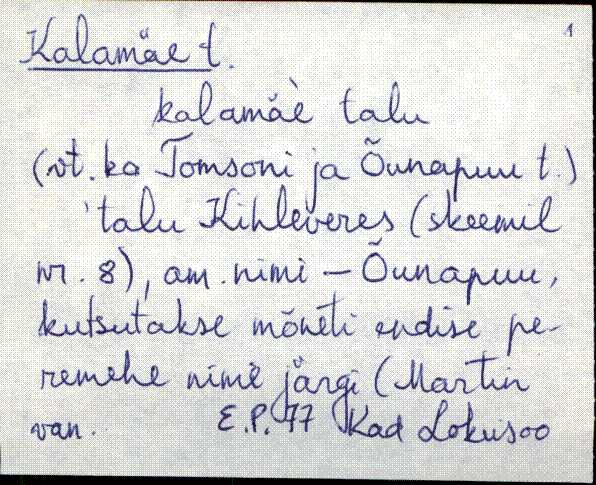 1
Kalamäe t.
kalamäe̬ talu
(vt. ka Tomsoni ja Õunapuu t.)
'talu Kihleveres (skeemil
nr. 8), am. nimi – Õunapuu,
kutsutakse mõneti endise pe-
remehe nime järgi (Martin
van. E.P. 77 Kad Lokusoo